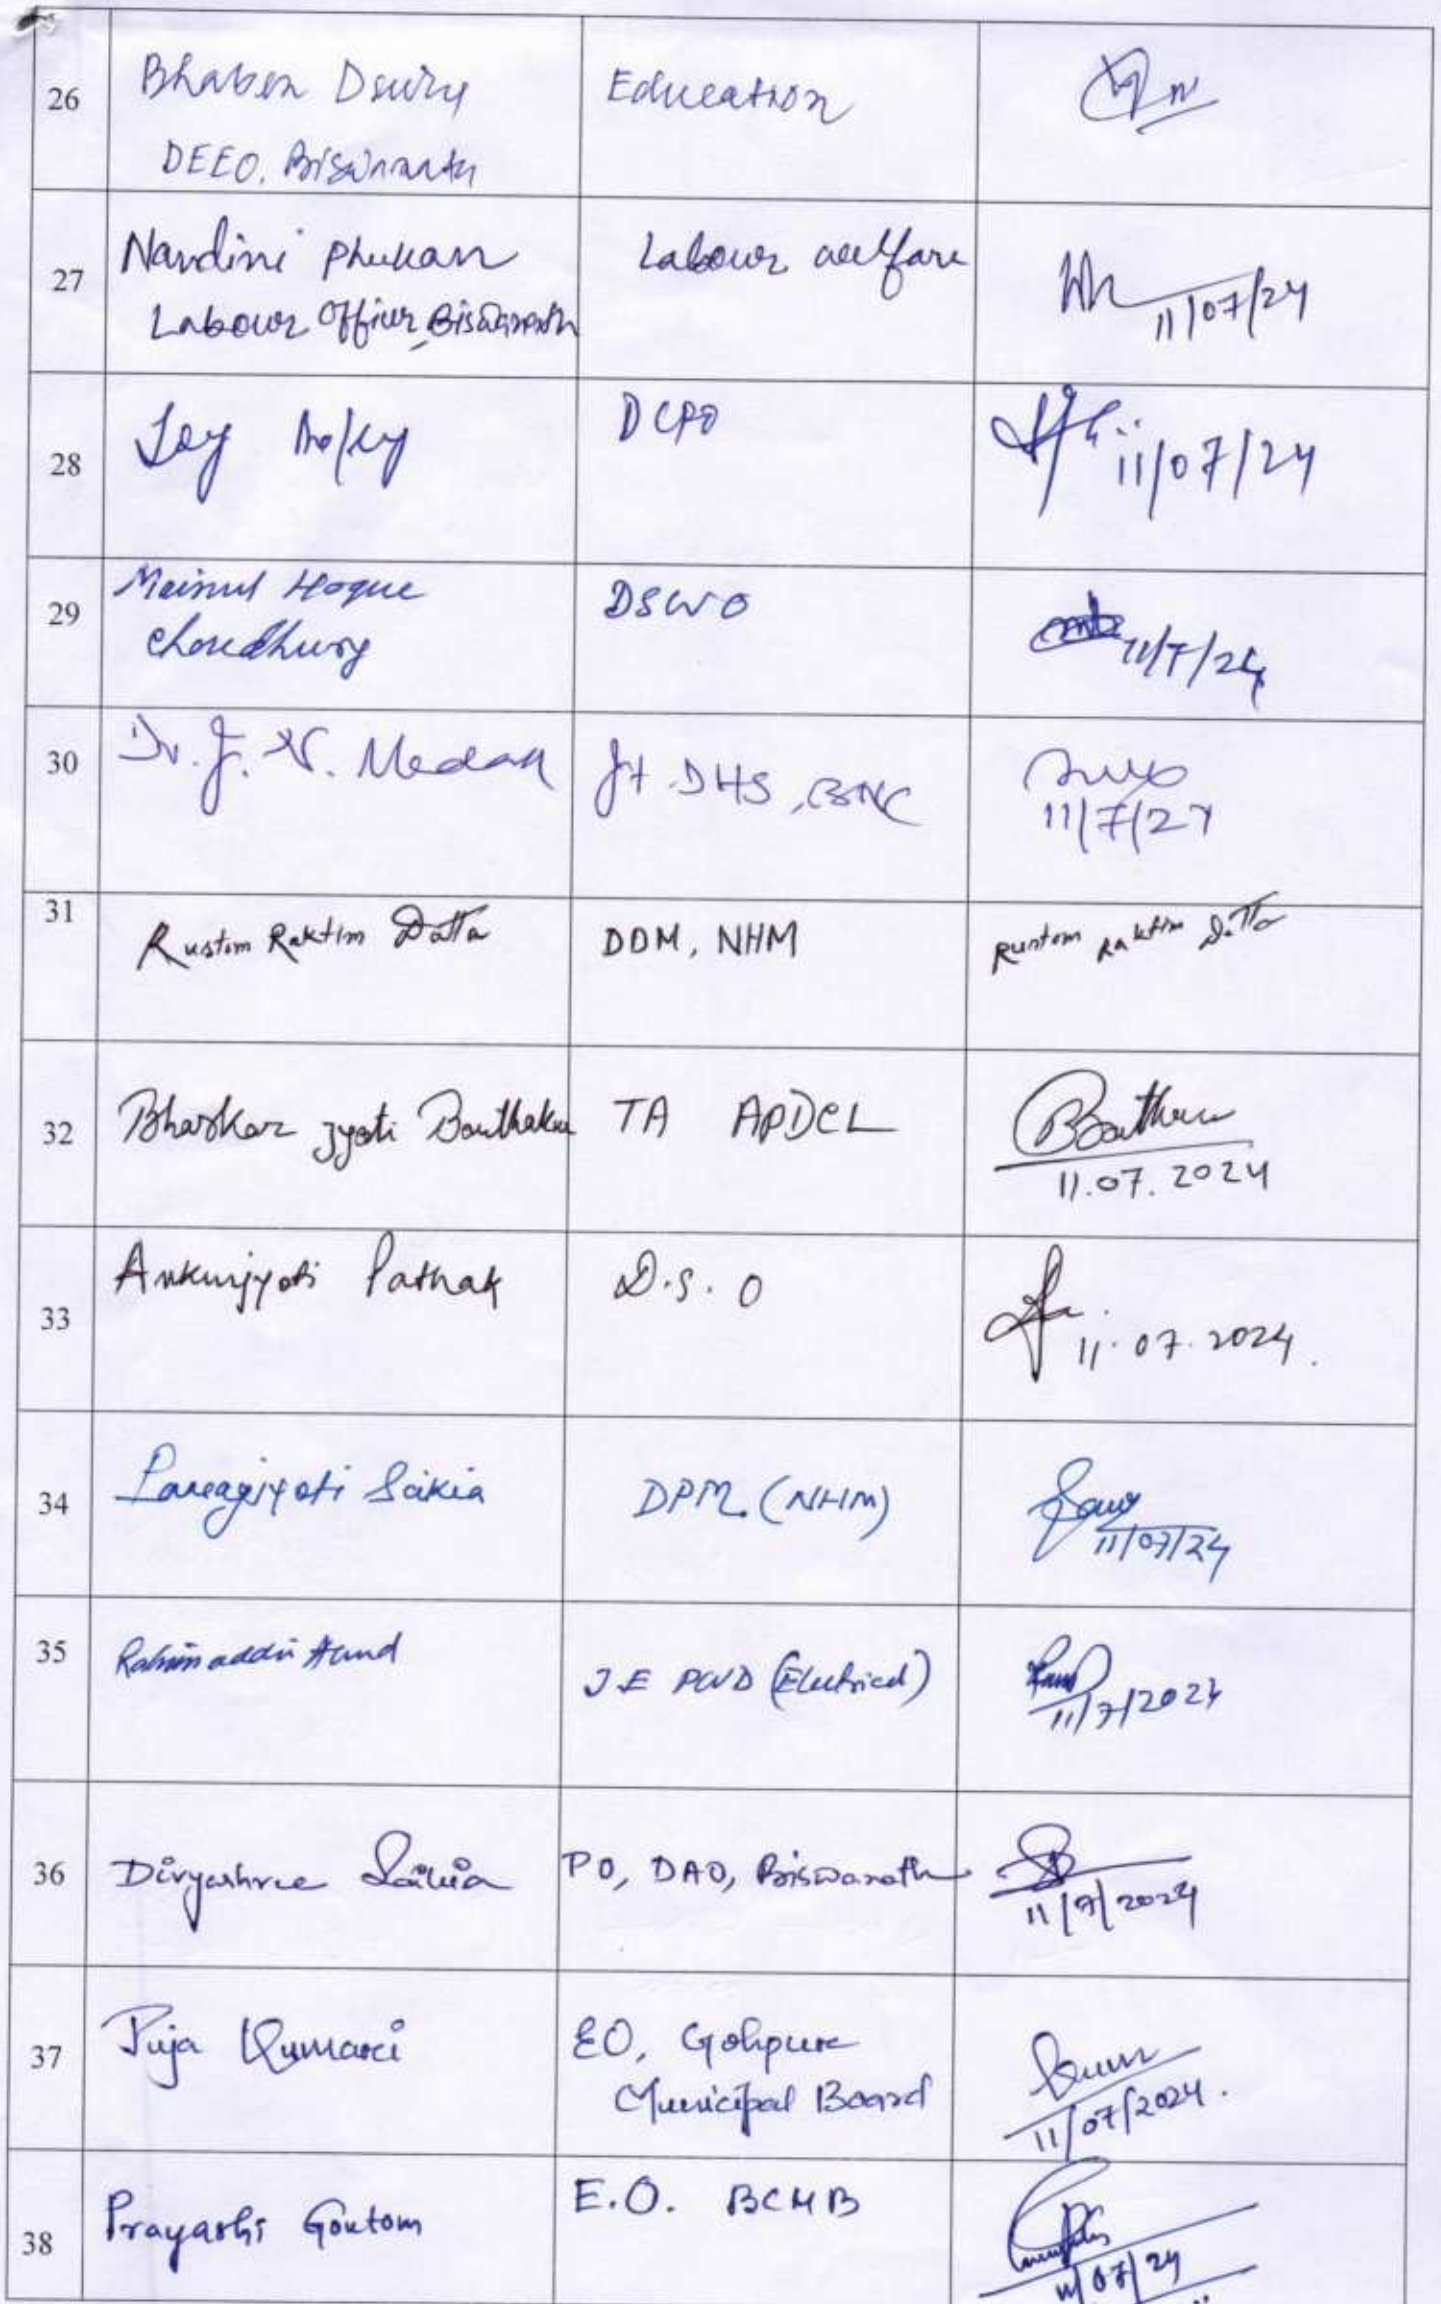 26 Bhaben Deury Education
DEEO, Biswanath
27 Nandini Phukan Labour welfare
Labour Officer, Biswanath 11/07/24
28 Joy DCPO 11/07/24
29 Mainul Hoque DSWO
Choudhury 11/7/24
30 Dr. J. N. Medak Jt. DHS, BNC
11/7/24
31 Rustom Raktim Datta DDM, NHM Rustom Raktim Datta
32 Bhaskar Jyoti Borthakur TA APDCL
11.07.2024
33 Ankurjyoti Pathak D.S.O
11.07.2024.
34 Paragjyoti Saikia DPM (NHM)
11/07/24
35 JE PWD (Electrical)
11/7/2024
36 Divyashree Saikia PO, DAO, Biswanath
11/7/2024
37 Puja Kumari EO, Gohpur
Municipal Board
11/07/2024.
38 Prayashi Goutom E.O. BCMB
11/07/24